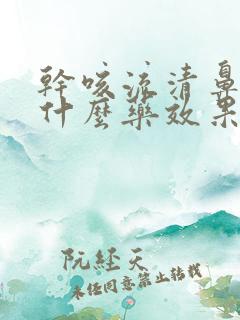 幹咳流清鼻
什麼藥效果
阮経天
未经同意禁止转载